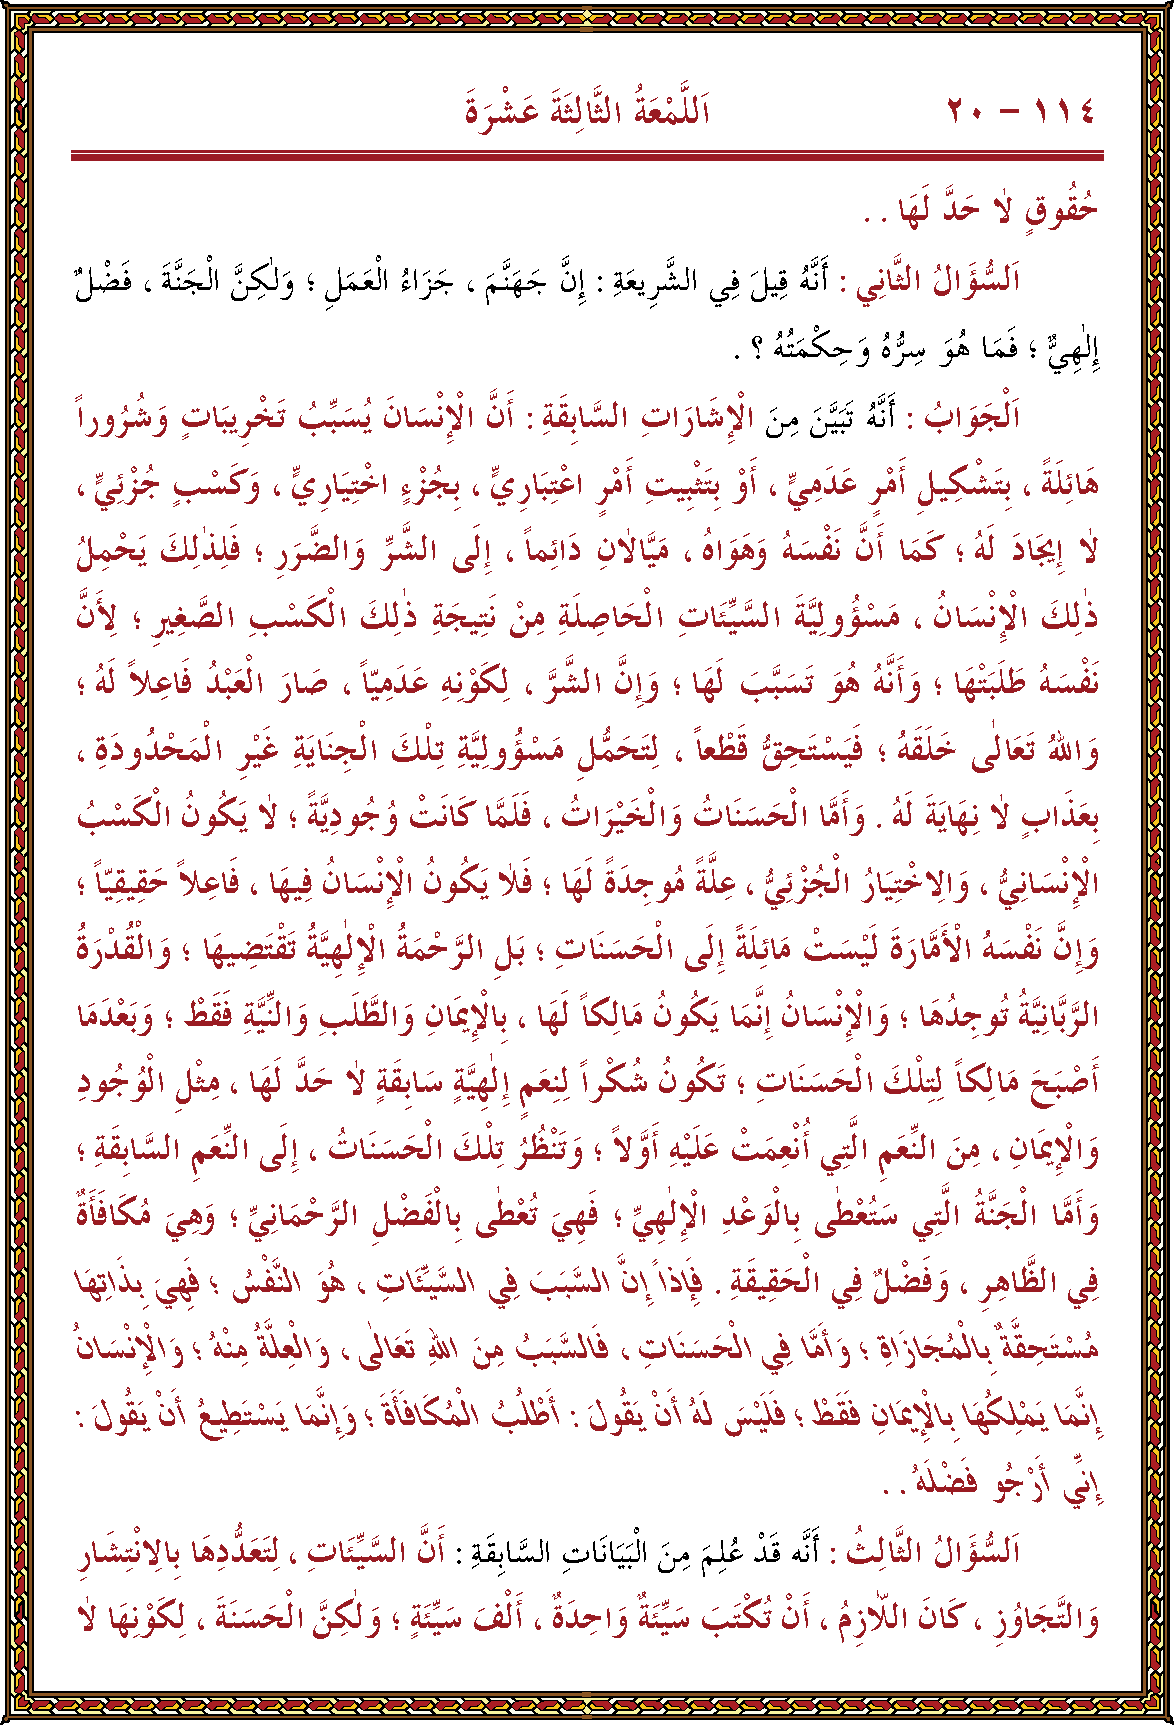 ١١٤ – ٢٠ اَللَّمْعَةُ الثَّالِثَةَ عَشْرَةَ
حُقُوقٍ لاٰ حَدَّ لَهَا . .
اَلسُّؤَالُ الثَّانِي : أَنَّهُ قِيلَ فِي الشَّرِيعَةِ : إِنَّ جَهَنَّمَ ، جَزَاءُ الْعَمَلِ ؛ وَلٰكِنَّ الْجَنَّةَ ، فَضْلٌ
إِلٰهِيٌّ ؛ فَمَا هُوَ سِرُّهُ وَحِكْمَتُهُ ؟ .
اَلْجَوَابُ : أَنَّهُ تَبَيَّنَ مِنَ الْإِشَارَاتِ السَّابِقَةِ : أَنَّ الْإِنْسَانَ يُسَبِّبُ تَخْرِيبَاتٍ وَشُرُوراً
هَائِلَةً ، بِتَشْكِيلِ أَمْرٍ عَدَمِيٍّ ، أَوْ بِتَثْبِيتِ أَمْرٍ اعْتِبَارِيٍّ ، بِجُزْءٍ اخْتِيَارِيٍّ ، وَكَسْبٍ جُزْئِيٍّ ،
لاٰ إِيجَادَ لَهُ ؛ كَمَا أَنَّ نَفْسَهُ وَهَوَاهُ ، مَيَّالاٰنِ دَائِماً ، إِلَى الشَّرِّ وَالضَّرَرِ ؛ فَلِذٰلِكَ يَحْمِلُ
ذٰلِكَ الْإِنْسَانُ ، مَسْؤُولِيَّةَ السَّيِّئَاتِ الْحَاصِلَةِ مِنْ نَتِيجَةِ ذٰلِكَ الْكَسْبِ الصَّغِيرِ ؛ لِأَنَّ
نَفْسَهُ طَلَبَتْهَا ؛ وَأَنَّهُ هُوَ تَسَبَّبَ لَهَا ؛ وَإِنَّ الشَّرَّ ، لِكَوْنِهِ عَدَمِيّاً ، صَارَ الْعَبْدُ فَاعِلاً لَهُ ؛
وَاللهُ تَعَالٰى خَلَقَهُ ؛ فَيَسْتَحِقُّ قَطْعاً ، لِتَحَمُّلِ مَسْؤُولِيَّةِ تِلْكَ الْجِنَايَةِ غَيْرِ الْمَحْدُودَةِ ،
بِعَذَابٍ لاٰ نِهَايَةَ لَهُ . وَأَمَّا الْحَسَنَاتُ وَالْخَيْرَاتُ ، فَلَمَّا كَانَتْ وُجُودِيَّةً ؛ لاٰ يَكُونُ الْكَسْبُ
الْإِنْسَانِيُّ ، وَالِاخْتِيَارُ الْجُزْئِيُّ ، عِلَّةً مُوجِدَةً لَهَا ؛ فَلاٰ يَكُونُ الْإِنْسَانُ فِيهَا ، فَاعِلاً حَقِيقِيّاً ؛
وَإِنَّ نَفْسَهُ الْأَمَّارَةَ لَيْسَتْ مَائِلَةً إِلَى الْحَسَنَاتِ ؛ بَلِ الرَّحْمَةُ الْإِلٰهِيَّةُ تَقْتَضِيهَا ؛ وَالْقُدْرَةُ
الرَّبَّانِيَّةُ تُوجِدُهَا ؛ وَالْإِنْسَانُ إِنَّمَا يَكُونُ مَالِكاً لَهَا ، بِالْإِيمَانِ وَالطَّلَبِ وَالنِّيَّةِ فَقَطْ ؛ وَبَعْدَمَا
أَصْبَحَ مَالِكاً لِتِلْكَ الْحَسَنَاتِ ؛ تَكُونُ شُكْراً لِنِعَمٍ إِلٰهِيَّةٍ سَابِقَةٍ لاٰ حَدَّ لَهَا ، مِثْلِ الْوُجُودِ
وَالْإِيمَانِ ، مِنَ النِّعَمِ الَّتِي أُنْعِمَتْ عَلَيْهِ أَوَّلاً ؛ وَتَنْظُرُ تِلْكَ الْحَسَنَاتُ ، إِلَى النِّعَمِ السَّابِقَةِ ؛
وَأَمَّا الْجَنَّةُ الَّتِي سَتُعْطٰى بِالْوَعْدِ الْإِلٰهِيِّ ؛ فَهِيَ تُعْطٰى بِالْفَضْلِ الرَّحْمَانِيِّ ؛ وَهِيَ مُكَافَأَةٌ
فِي الظَّاهِرِ ، وَفَضْلٌ فِي الْحَقِيقَةِ . فَإِذاً إِنَّ السَّبَبَ فِي السَّيِّئَاتِ ، هُوَ النَّفْسُ ؛ فَهِيَ بِذَاتِهَا
مُسْتَحِقَّةٌ بِالْمُجَازَاةِ ؛ وَأَمَّا فِي الْحَسَنَاتِ ، فَالسَّبَبُ مِنَ اللهِ تَعَالٰى ، وَالْعِلَّةُ مِنْهُ ؛ وَالْإِنْسَانُ
إِنَّمَا يَمْلِكُهَا بِالْإِيمَانِ فَقَطْ ؛ فَلَيْسَ لَهُ أَنْ يَقُولَ : أَطْلُبُ الْمُكَافَأَةَ ؛ وَإِنَّمَا يَسْتَطِيعُ أَنْ يَقُولَ :
إِنِّي أَرْجُو فَضْلَهُ . .
اَلسُّؤَالُ الثَّالِثُ : أَنَّه قَدْ عُلِمَ مِنَ الْبَيَانَاتِ السَّابِقَةِ : أَنَّ السَّيِّئَاتِ ، لِتَعَدُّدِهَا بِالِانْتِشَارِ
وَالتَّجَاوُزِ ، كَانَ اللّاَزِمُ ، أَنْ تُكْتَبَ سَيِّئَةٌ وَاحِدَةٌ ، أَلْفَ سَيِّئَةٍ ؛ وَلٰكِنَّ الْحَسَنَةَ ، لِكَوْنِهَا لاٰ